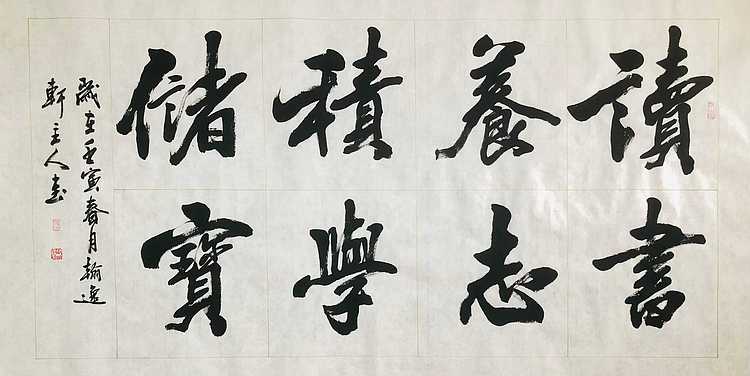 讀書
養志
積學
儲寶
歲在壬寅春月翰逸
軒主人書